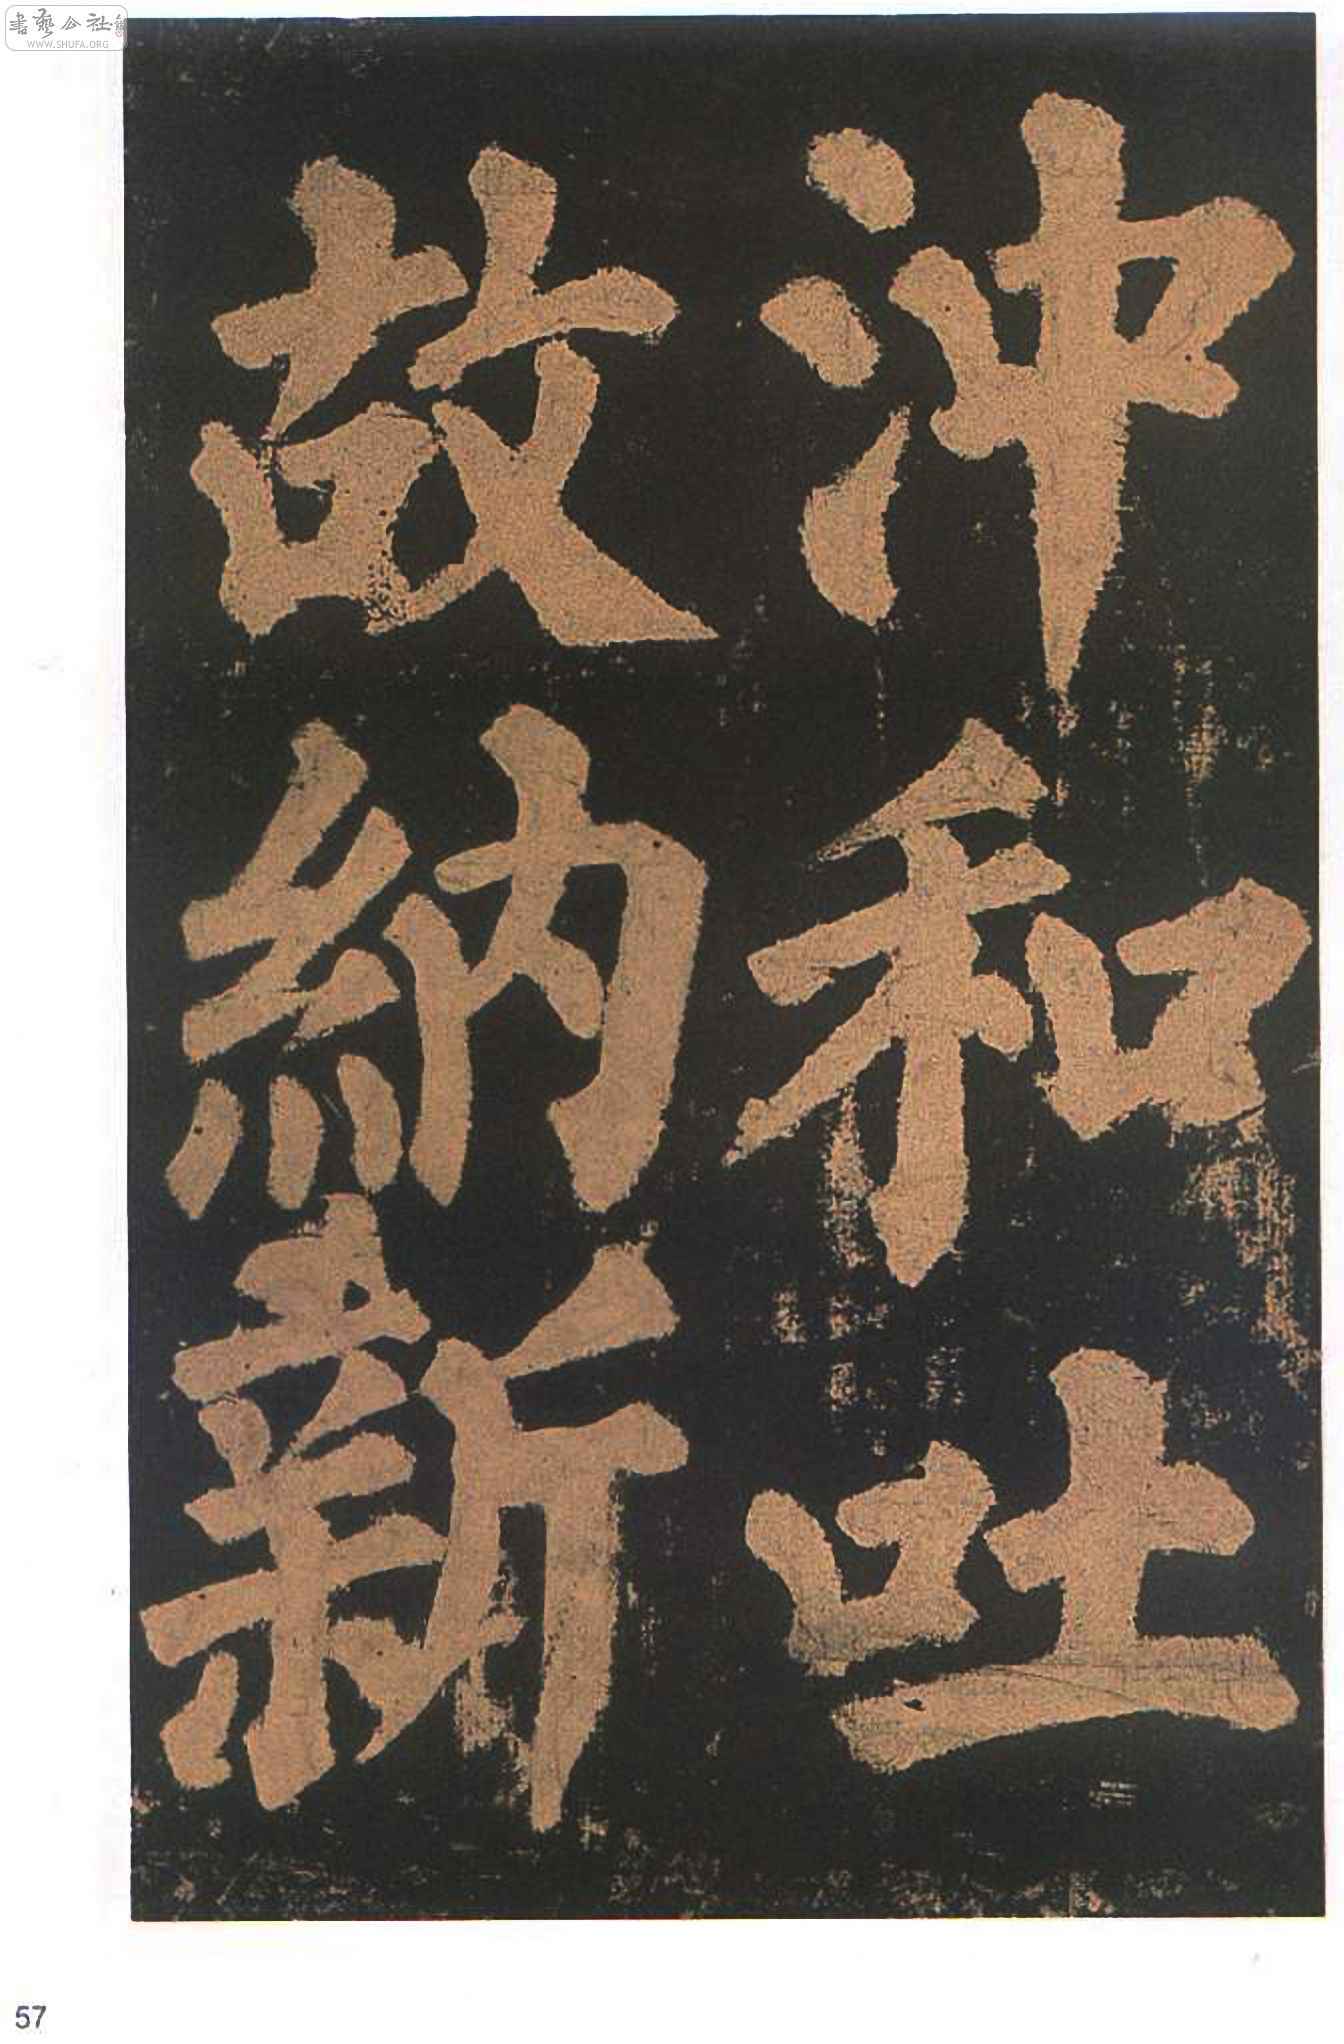 沖和吐
故納新
書藝公社
WWW.SHUFA.ORG
57